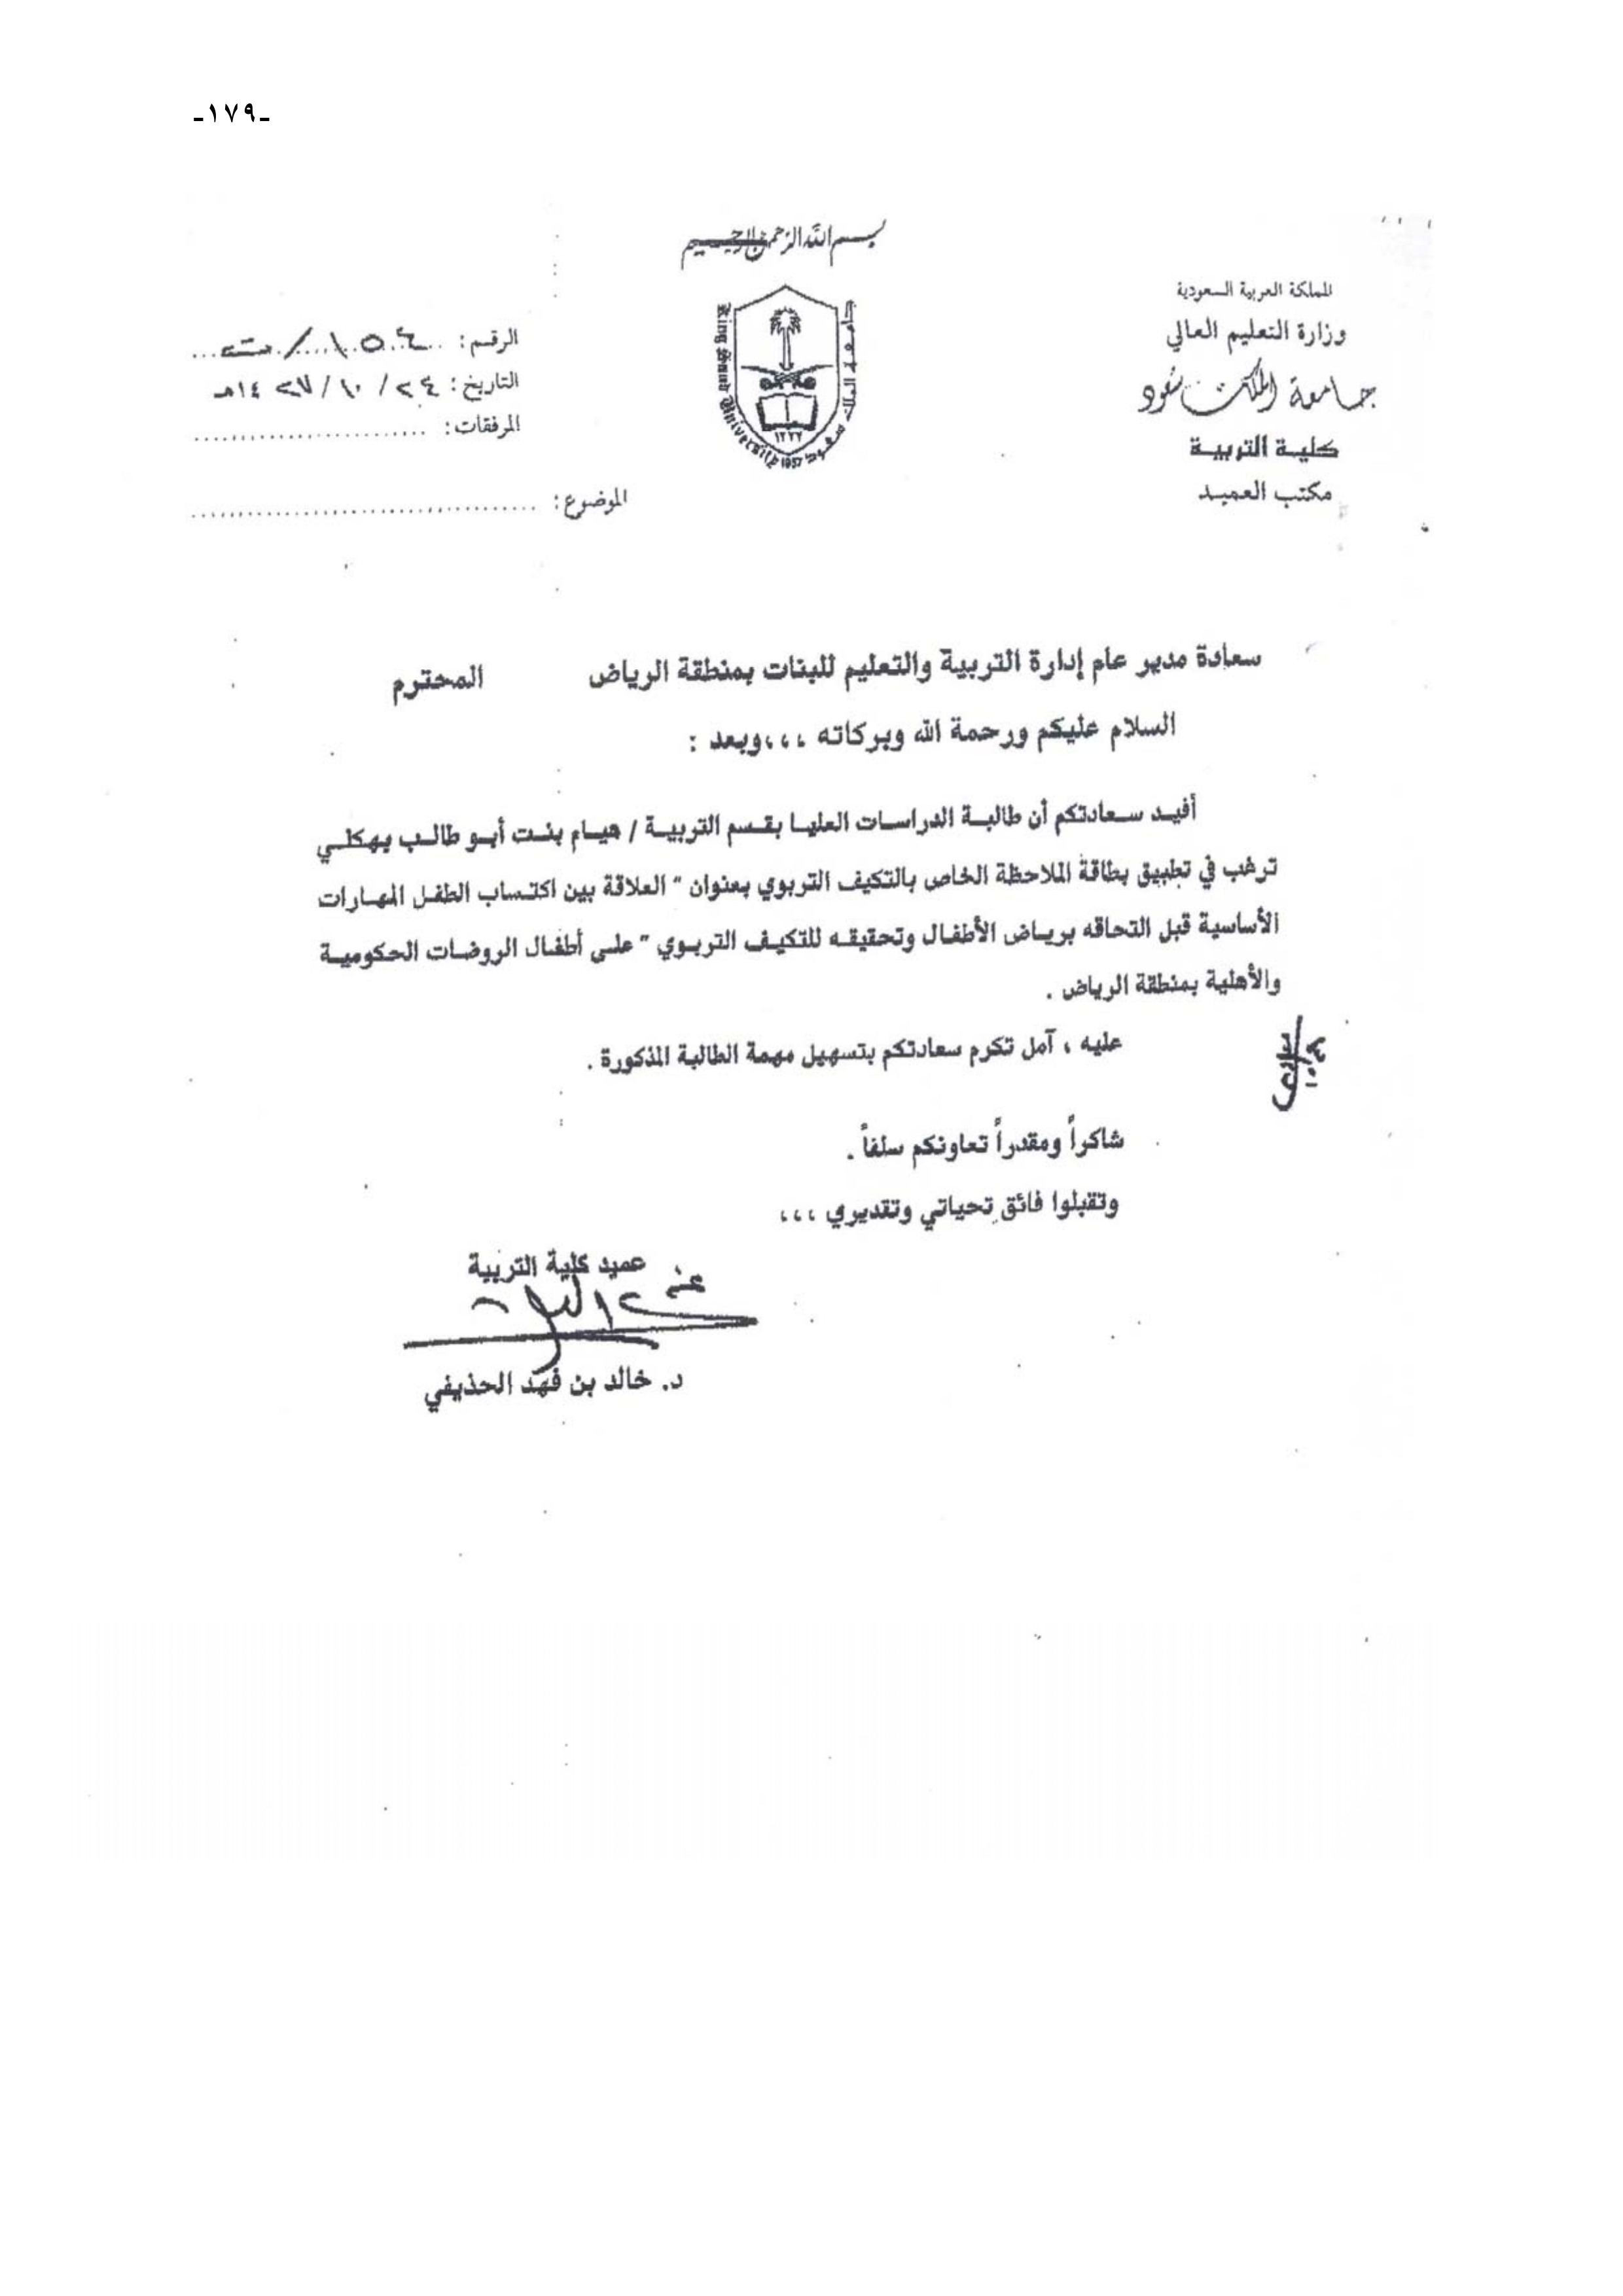 -١٧٩-
بسم الله الرحمن الرحيم
المملكة العربية السعودية
وزارة التعليم العالي
جامعة الملك سعود
كلية التربية
مكتب العميد
جامعة الملك سعود
King Saud University 1957
الرقم:
التاريخ: ٢٤ / ١٠ / ١٤٢٧هـ
المرفقات:
الموضوع:
سعادة مدير عام إدارة التربية والتعليم للبنات بمنطقة الرياض المحترم
السلام عليكم ورحمة الله وبركاته ،،،وبعد :
أفيد سعادتكم أن طالبة الدراسات العليا بقسم التربية / هيام بنت أبو طالب بهكلي
ترغب في تطبيق بطاقة الملاحظة الخاص بالتكيف التربوي بعنوان " العلاقة بين اكتساب الطفل المهارات
الأساسية قبل التحاقه برياض الأطفال وتحقيقه للتكيف التربوي " على أطفال الروضات الحكومية
والأهلية بمنطقة الرياض .
عليه ، آمل تكرم سعادتكم بتسهيل مهمة الطالبة المذكورة .
شاكراً ومقدراً تعاونكم سلفاً .
وتقبلوا فائق تحياتي وتقديري ،،،
عميد كلية التربية
د. خالد بن فهد الحذيفي